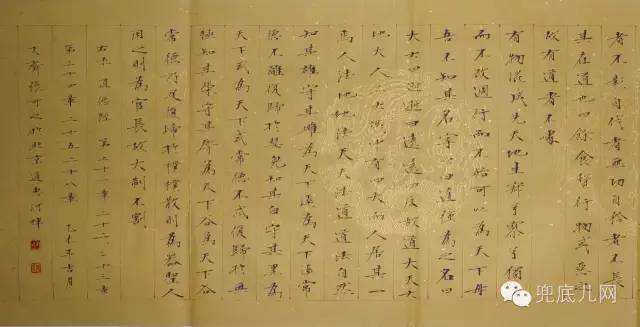 者不彰自伐者無功自矜者不長
其在道也曰餘食贅行物或惡之
故有道者不處
有物混成先天地生寂兮寥兮獨
而不改周行而不殆可以為天下母
吾不知其名字之曰道強為之名曰
大大曰逝逝曰遠遠曰反故道大天大
地大人亦大域中有四大而人居其一
焉人法地地法天天法道道法自然
知其雄守其雌為天下溪常
德不離復歸於嬰兒知其白守其黑為
天下式為天下式常德不忒復歸於無
極知其榮守其辱為天下谷為天下谷
常德乃足復歸於樸樸散則為器聖人
用之則為官長故大制不割
道德經 第二十一章 二十二 二十三章
第二十四章 二十五 二十八章 乙未年吉月
於北京通惠河畔
兜底儿网